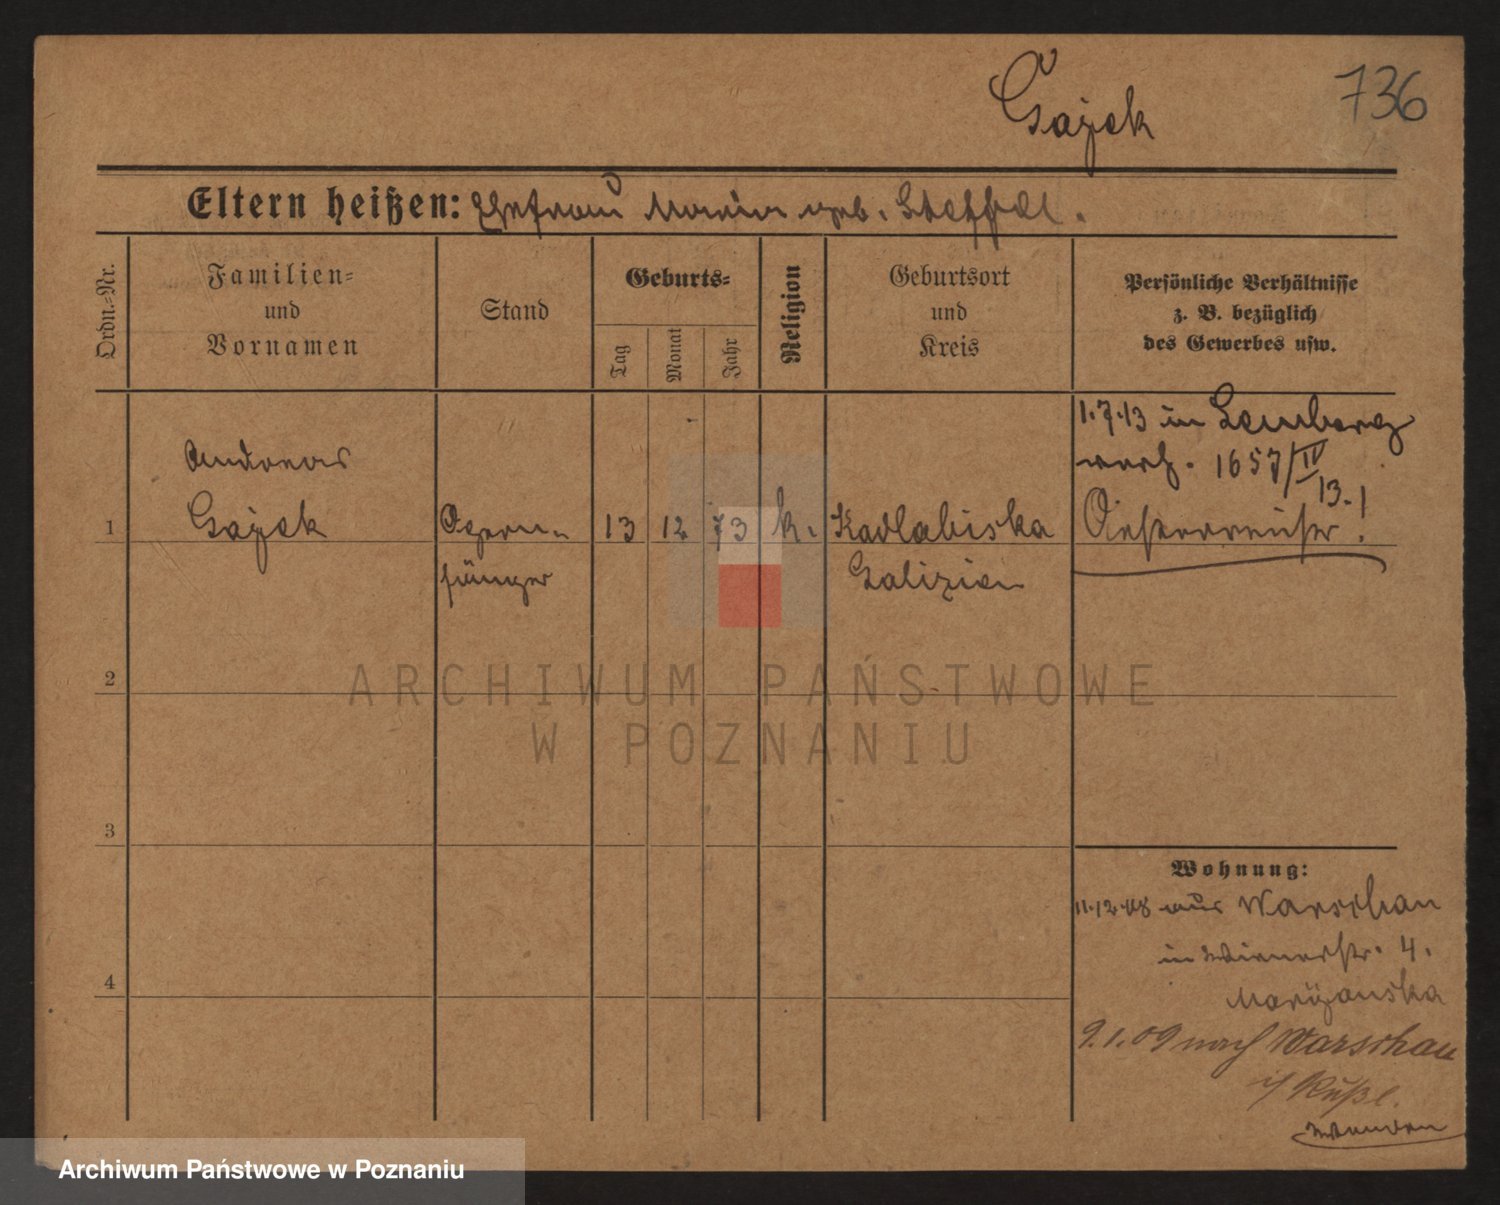 Gajek
736
Eltern heißen: Ehefrau Maria geb. Steffel.
Ordn.=Nr.
Familien=
und
Vornamen
Stand
Geburts=
Tag
Monat
Jahr
Religion
Geburtsort
und
Kreis
Persönliche Verhältnisse
z. B. bezüglich
des Gewerbes usw.
1.7.13 in Lemberg
verh. 1657/IV
13.!
Andreas
1 Gajek Opern- 13 12 73 k. Kadlabiska Oesterreicher!
sänger Galizien
2
3
4
Wohnung:
11.12.08 aus Warschau
in Wienerstr. 4.
9.1.09 nach Warschau
i/ Rußl.
Wenden
ARCHIWUM PAŃSTWOWE
W POZNANIU
Archiwum Państwowe w Poznaniu